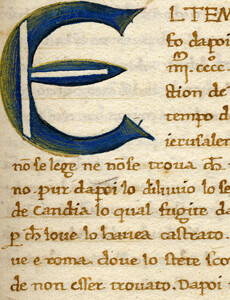 EL TEM
fo dapoi
IIII. cccc
stion de
tempo d
ierusalen
no se lege ne nõ se troua ch
no. pur dapoi lo diluuio lo se
de Candia lo qual fugite da
p ch Ioue lo hauea castrato.
ue e roma. doue lo stete sco
de non esser trouato. Dapoi